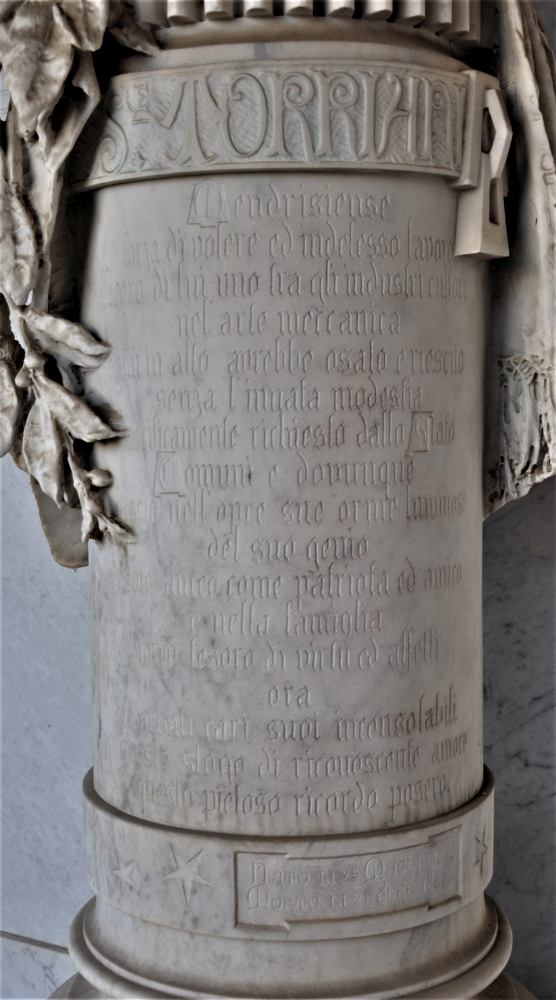 TORRIANI
Mendrisiense
di volere ed indefesso lavoro
di lui uno fra gli industri cultori
nel'arte meccanica
in alto avrebbe osato e riescito
senza l'innata modestia
richiesto dallo Stato
Comuni e dovunque
nell'opre sue orme luminose
del suo genio
amico come patriota ed amico
e nella famiglia
tesoro di virtù ed affetti
ora
cari suoi inconsolabili
sfogo di riconoscente amore
questo pietoso ricordo posero.
NATO LI 25 MAGGIO
MORTO LI 21